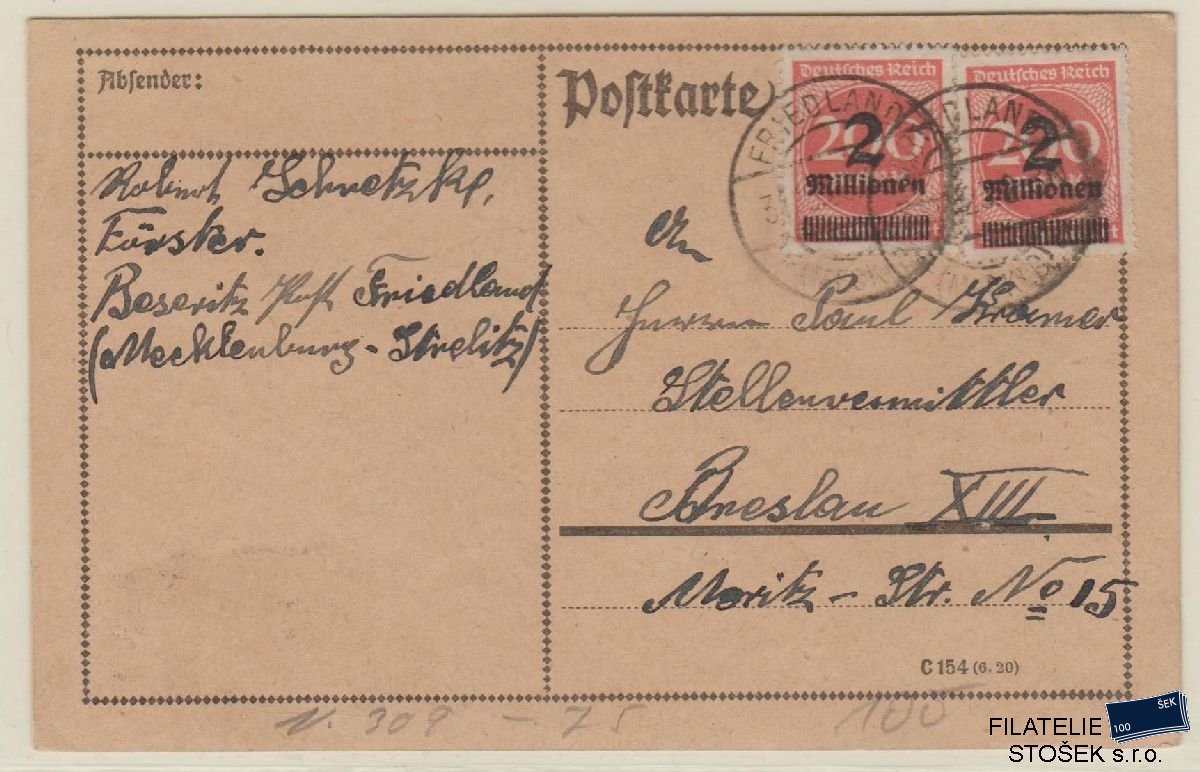 Absender:
Postkarte
Deutsches Reich
200
2
Millionen
Deutsches Reich
200
2
Millionen
FRIEDLAND
Robert Schretzke,
Förster.
Beseritz Post Friedland
(Mecklenburg-Strelitz)
An
Herrn Paul Kramer
Stellenvermittler
Breslau XIII
Moritz-Str. No 15
C 154 (6. 20)
N. 309 - 75 100
100 ŠEK
FILATELIE
STOŠEK s.r.o.